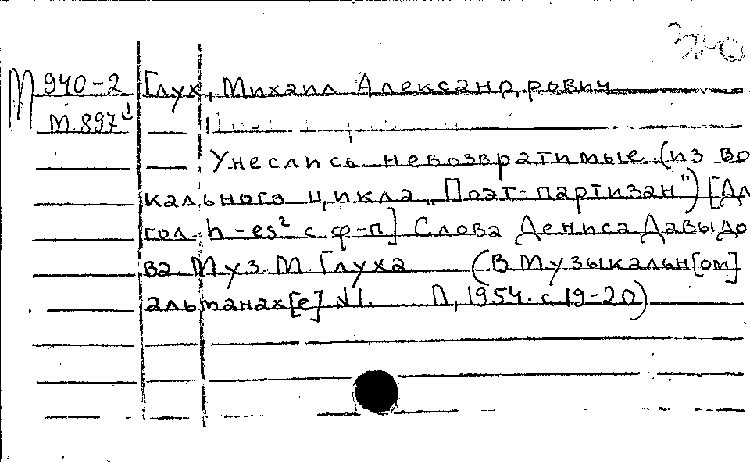 П 940-2 Глух, Михаил Александрович
М.897
Унеслись невозвратимые (из во
кального цикла "Поэт-партизан") [Дл
гол. h-es² с ф-п] Слова Дениса Давыдо
ва Муз. М. Глуха (В Музыкальн[ом]
альманах[е] №1. Л, 1954. с 19-20)